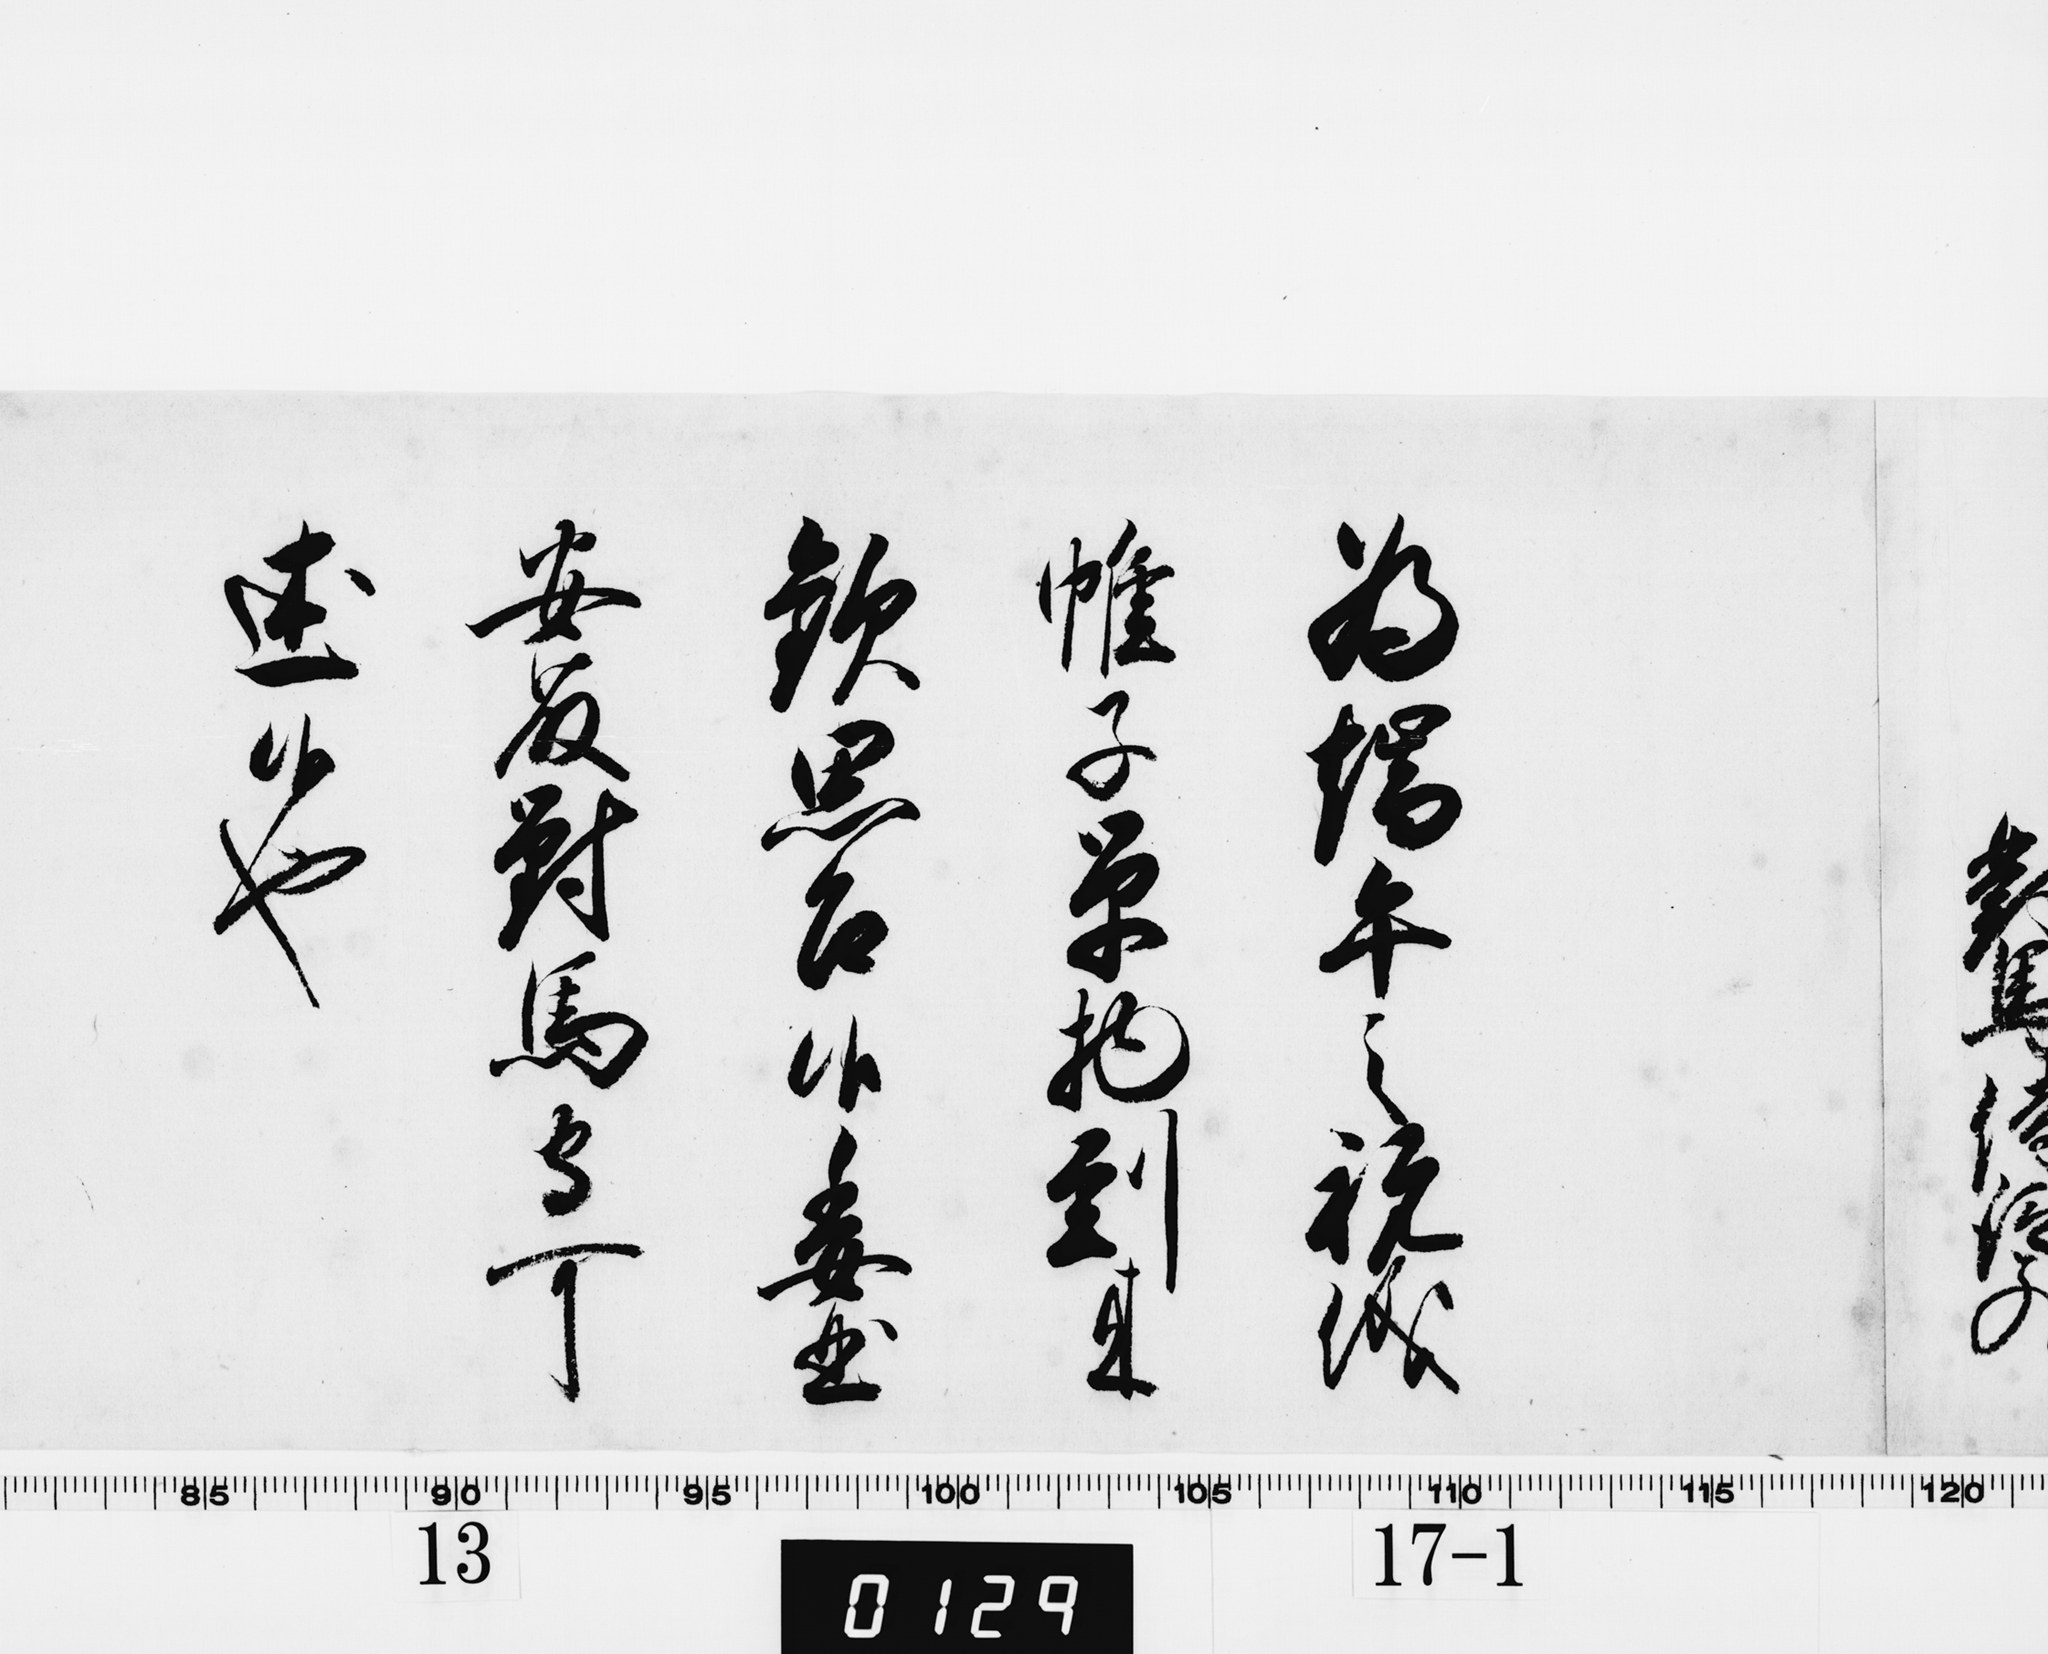 為端午之祝儀
帷子単物到来
歓思召候委曲
安藤對馬守可
述候也
85 90 95 100 105 110 115 120
13
17-1
0129